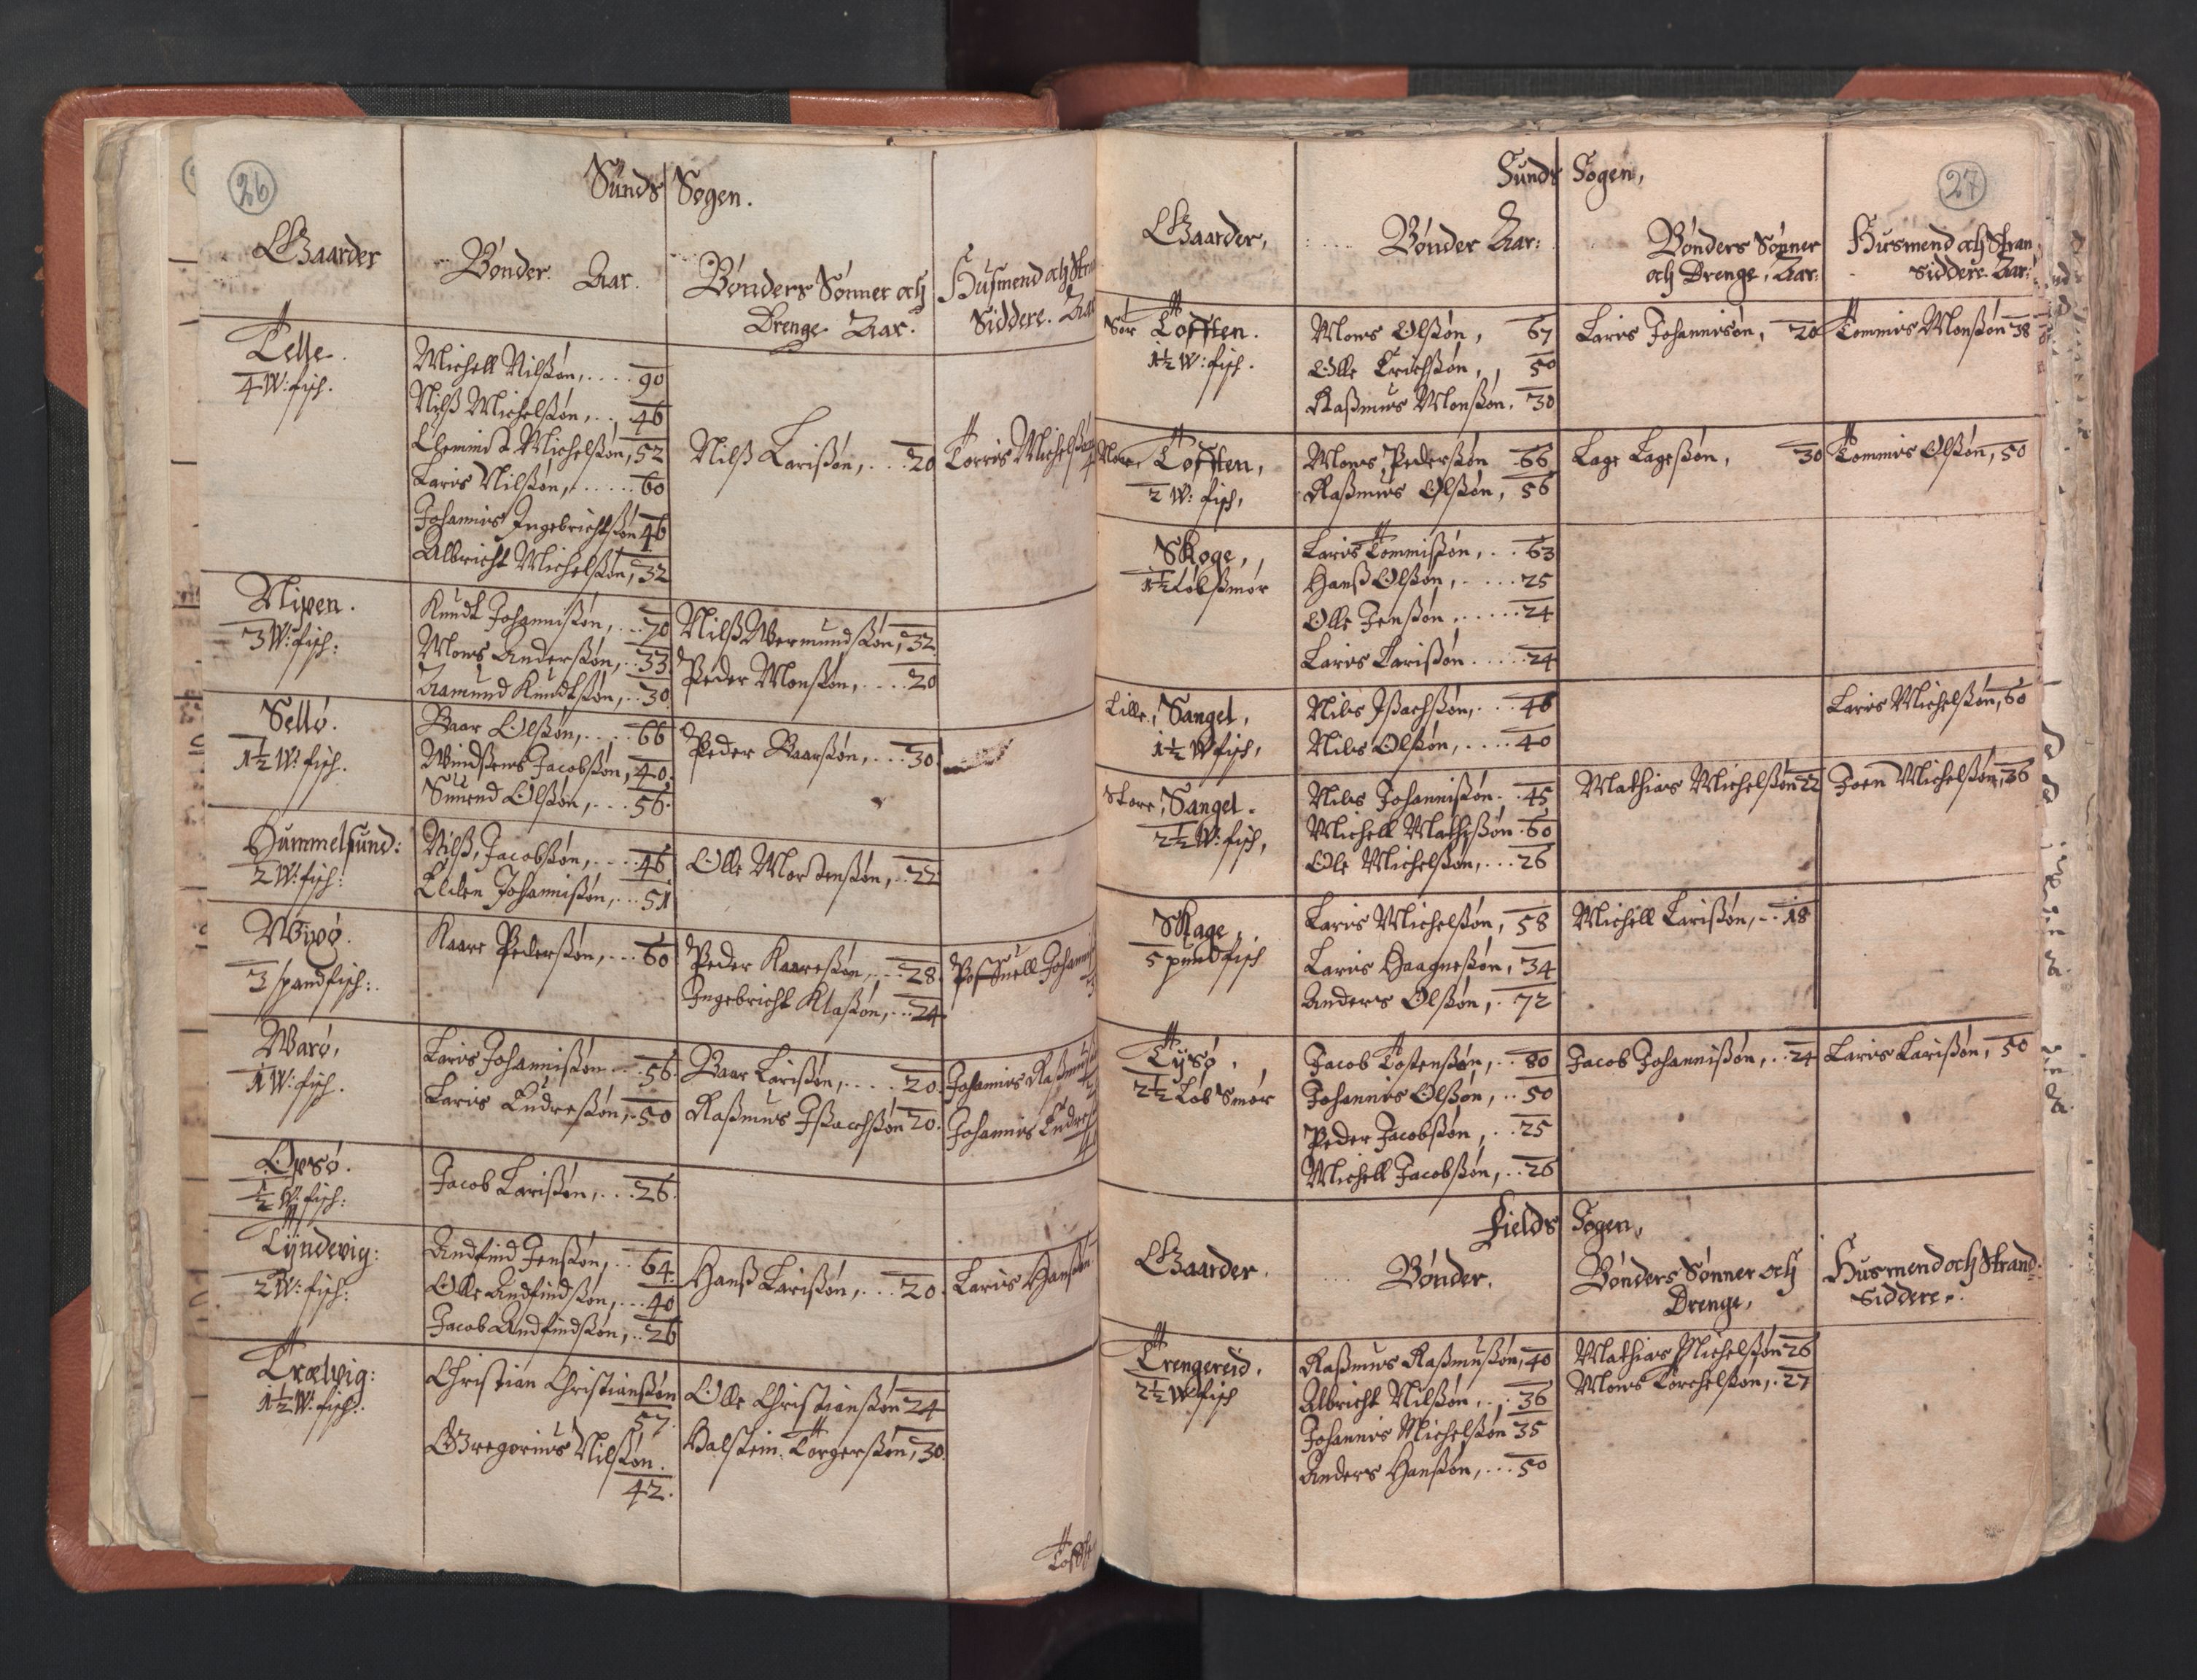 26
Sunds Sogen.
Gaarder
Bønder. Aar.
Bønders Sønner och
Drenge Aar.
Husmend och Stra
Siddere. Aar
Telle.
4 W: fisch.
Michell Nilßøn, .... 90
Nilß Michelßøn, .. 46
Clemind Michelßøn, 52
Laris Nilßøn, ..... 60
Johannis Ingebrichtßøn 46
Albricht Michelßøn, 32
Nilß Larisøn, ... 20
Torris Michelßøn
Nipen.
3 W: fisch:
Knudt Johannißøn, .. 70
Mons Anderßøn, .. 33
Aamund Knudtßøn, .. 30
Nilß Wermundßøn, 32.
Peder Monßøn, .... 20
Sellø.
1½ W: fisch.
Baar Olßøn, .... 66
Windßens Jacobßøn, 40.
Siurend Olßøn, ... 56.
Peder Baarßøn, ... 30.
Hummelsund:
2 W: fisch:
Nilß Jacobßøn, .... 46
Elden Johannißøn, ... 51
Olle Mordenßøn, .. 22
Wipø.
3 spand fisch:.
Kaare Pederßøn, ... 60
Peder Kaareßøn, ... 28.
Ingebricht Klaßøn, .. 24
Poffuell Johanni
Warø,
1 W: fisch.
Laris Johannißøn .. 56.
Laris Endreßøn, .. 50
Baar Larißøn, .... 20.
Raßmus Ißachßøn 20.
Johannis Raßmuß
Johannis Endreß
Opsø.
½ W: fisch:
Jacob Larißøn, ... 26.
Tÿndevig:
2 W: fisch:
Andfind Jenßøn, .. 64.
Olle Andfindßøn, ... 40
Jacob Andfindßøn, .. 26
Hanß Larißøn, ... 20.
Laris Hanßøn
Trælvig:
1½ W: fisch:.
Christian Christianßøn
57.
Gregorius Nilßøn.
42.
Olle Christianßøn 24
Halstein Torgerßøn, 30.
Tofft
27
Sunds Sogen,
Gaarder,
Bønder Aar:
Bønders Sønner
och Drenge, Aar:
Husmend och Stran
siddere Aar:
Sør Tofften.
1½ W: fisch.
Mons Olßøn, 67
Olle Erichßøn, , 50
Raßmus Monßøn. 30
Laris Johannisøn, 20
Tommis Monßøn 38
Nore Tofften,
2 W: fisch,
Mons Pederßøn 66
Raßmus Olßøn, 56
Lage Lageßøn, 30
Tommis Olßøn, 50
Skoge,
1½ Løb Smør
Laris Tommißøn, .. 63
Hanß Olßøn, ..... 25
Olle Jenßøn, ..... 24
Laris Larißøn ..... 24
Lille, Sangel,
1½ W fisch,
Nilis Ißachßøn, ... 46
Nilis Olßøn, .... 40
Laris Michelßøn, 60
Store, Sangel.
2½ W: fisch,
Nilis Johannißøn. .. 45
Michell Mathißøn . 60
Ole Michelßøn, ... 26
Mathias Michelßøn 22
Joen Michelßøn, 36
Skage,
5 pund fisch
Laris Michelßøn, 58
Laris Haagneßøn, 34
Anders Olßøn, . 72
Michell Larißøn, .. 18
Tÿsø,
2½ Løb Smør
Jacob Tostenßøn, .. 80
Johannis Olßøn, .. 50
Peder Jacobßøn, .. 25
Michell Jacobßøn, .. 26
Jacob Johannißøn, .. 24
Laris Larißøn, 50
Fields Sogen,
Gaarder.
Bønder.
Bønders Sønner och
Drenge,
Husmend och Strand
siddere.
Trengereid.
2½ W fisch
Raßmus Raßmußøn, 40
Albricht Nilßøn, .. 36
Johannis Michelßøn 35
Anders Hanßøn, ... 50
Mathias Michelßøn 26
Mons Torchelßøn, . 27